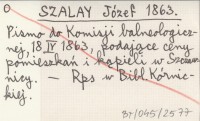 SZALAY Józef 1863.
Pismo do Komisji balneologicz-
nej, 18 IV 1863, podające ceny
pomieszkań i kąpieli w Szczaw-
nicy. — Rps w Bibl. Kórnic-
kiej.
BJ/045/2577